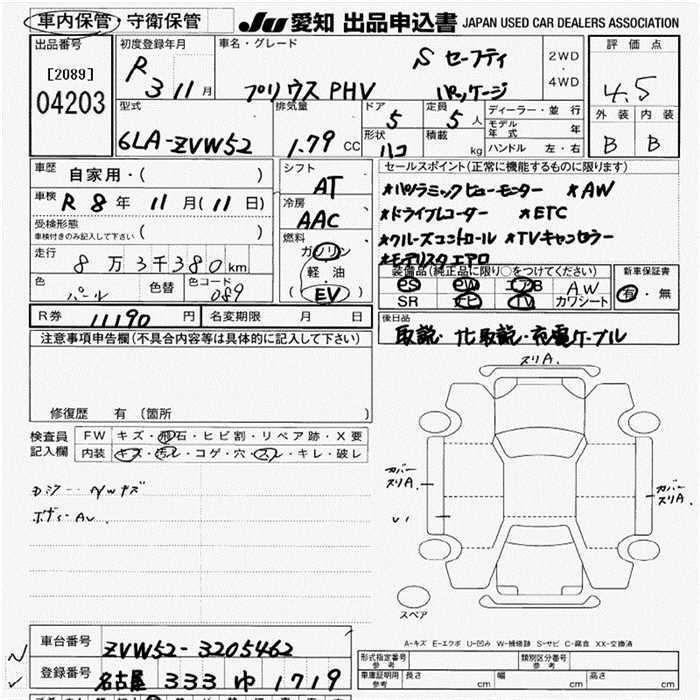 車内保管・守衛保管 JU 愛知 出品申込書 JAPAN USED CAR DEALERS ASSOCIATION
出品番号 [2089] 04203
初度登録年月 R 3 11月
車名・グレード プリウス PHV S セーフティ パッケージ
2WD・4WD
評価点 4.5
型式 6LA-ZVW52
排気量 1.79 CC
ドア 5
定員 5人
形状 ハコ
積載 kg
ディーラー・並行
モデル年式 年
ハンドル 左・右
外装 内装
B B
車歴 自家用・( )
車検 R 8年 11月(11日)
受検形態 車検付きのみ記入して下さい ( )
走行 8万3千380km
色 パール 色替 色コード 089
シフト AT
冷房 AAC
燃料 ガソリン 軽油 (EV)
セールスポイント(正常に機能するものに限ります)
*パノラミックビューモニター *AW
*ドライブレコーダー *ETC
*クルーズコントロール *TVキャンセラー
*モデリスタエアロ
装備品(純正品に限り○をつけてください)
PS PW エアB AW
SR ナビ TV カワシート
新車保証書 有・無
R券 11190円 名変期限 年 月 日
後日品 取説・ナビ取説・充電ケーブル
注意事項申告欄(不具合内容等は具体的に記入して下さい)
修復歴 有(箇所 )
検査員記入欄
FW キズ・飛石・ヒビ割・リペア跡・X要
内装 キズ・汚レ・コゲ・穴・スレ・キレ・破レ
ボディー AU
スリA.
カバースリA.
カバースリA.
スペア
A-キズ E-エクボ U-凹み W-補修跡 S-サビ C-腐食 XX-交換済
車台番号 ZVW52-3205462
登録番号 名古屋 333 ゆ 1719
形式指定番号 参考
類別区分番号 参考
車庫証明用 参考 長さ cm 幅 cm 高さ cm